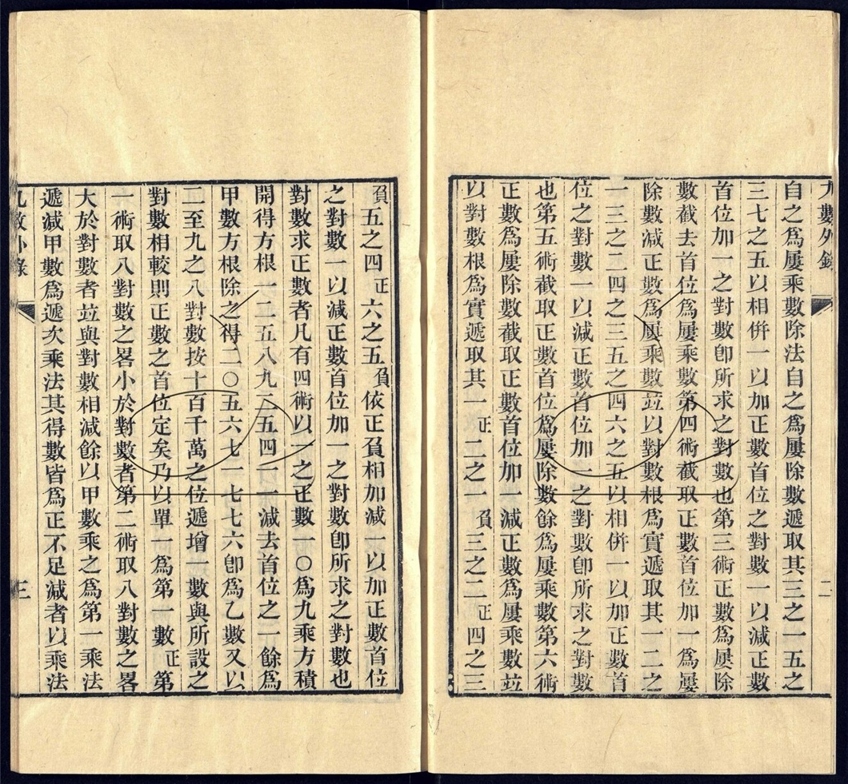 九數外錄
二
自之爲屢乘數除法自之爲屢除數遞取其三之一五之
三七之五以相併一以加正數首位之對數一以減正數
首位加一之對數卽所求之對數也第三術正數爲屢除
數截去首位爲屢乘數第四術截取正數首位加一爲屢
除數減正數爲屢乘數竝以對數根爲實遞取其一二之
一三之二四之三五之四六之五以相併一以加正數首
位之對數一以減正數首位加一之對數卽所求之對數
也第五術截取正數首位爲屢除數餘爲屢乘數第六術
正數爲屢除數截取正數首位加一減正數爲屢乘數竝
以對數根爲實遞取其一正二之一負三之二正四之三
負五之四正六之五負依正負相加減一以加正數首位
之對數一以減正數首位加一之對數卽所求之對數也
對數求正數者凡有四術以一之正數一〇爲九乘方積
開得方根一二五八九二五四一一減去首位之一餘爲
甲數方根除之得二〇五六七一七七六卽爲乙數又以
二至九之八對數按十百千萬之位遞增一數與所設之
對數相較則正數之首位定矣乃以單一爲第一數正第
一術取八對數之畧小於對數者第二術取八對數之畧
大於對數者竝與對數相減餘以甲數乘之爲第一乘法
遞減甲數爲遞次乘法其得數皆爲正不足減者以乘法
九數外錄
三